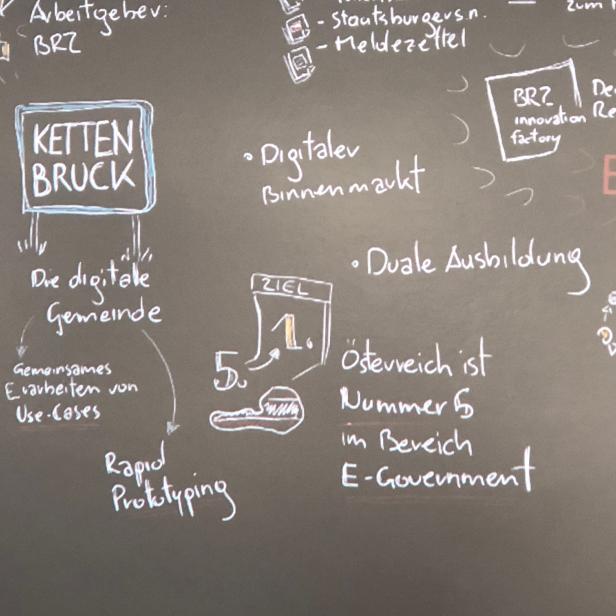 Arbeitgeber:
BRZ
- Staatsbürgersn.
- Meldezettel
zum
BRZ
innovation
factory
De
Re
KETTEN
BRUCK
• Digitaler
Binnenmarkt
Die digitale
Gemeinde
• Duale Ausbildung
ZIEL
1.
5.
Gemeinsames
Erarbeiten von
Use-Cases
Österreich ist
Nummer 5
im Bereich
E-Government
Rapid
Prototyping